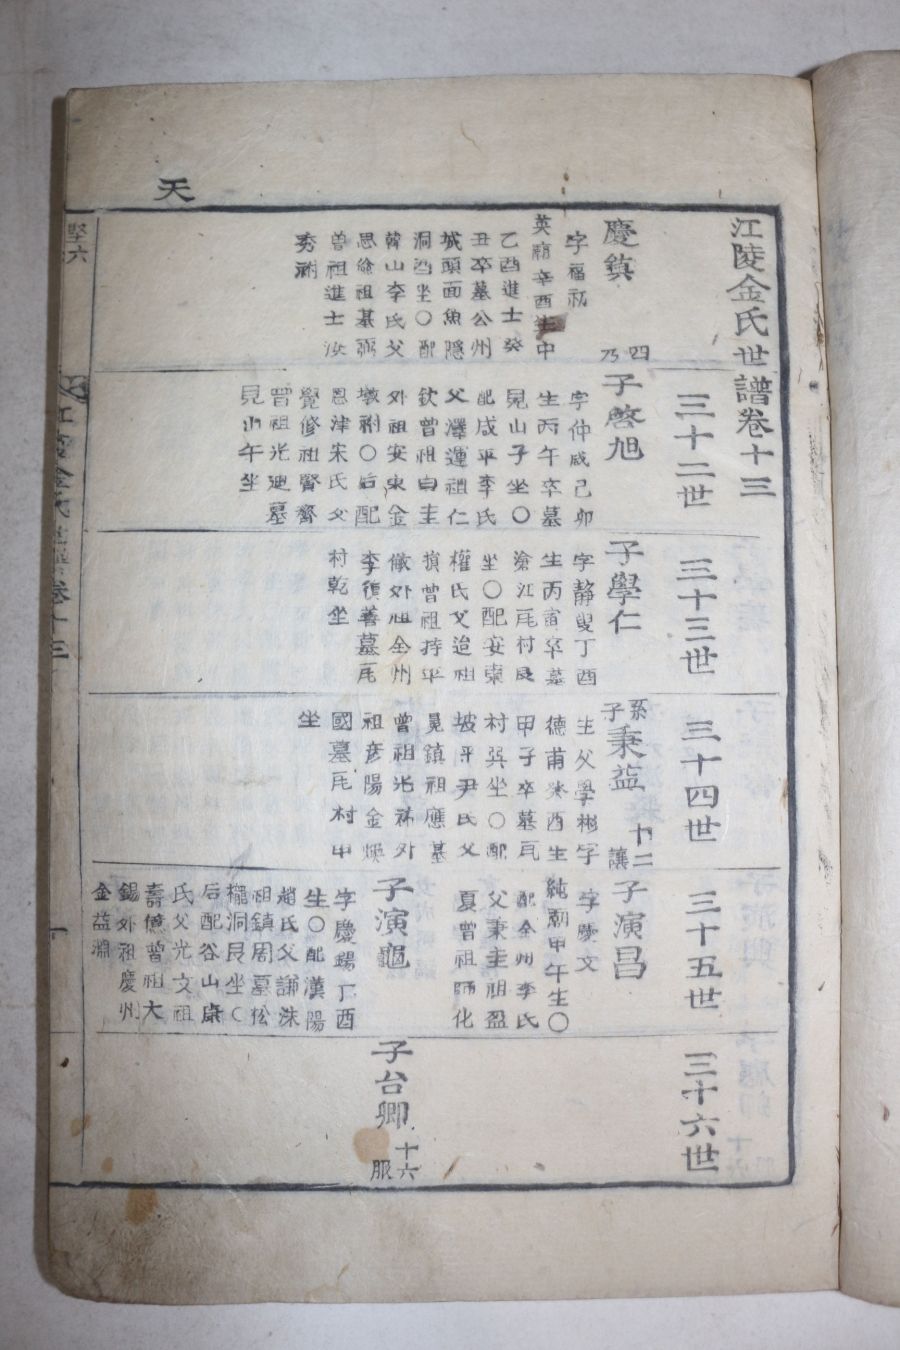 天
江陵金氏世譜卷十三
三十二世
三十三世
三十四世
三十五世
三十六世
慶鎮
四
乃
字福初
英廟辛酉生中
乙酉進士癸
丑卒墓公州
城頭面魚隱
洞酉坐〇配
韓山李氏父
思倫祖基弼
曾祖進士汝
秀
子啓旭
字仲威己卯
生丙午卒墓
見山子坐〇
配咸平李氏
父澤運祖仁
欽曾祖白圭
外祖安東金
〇后配
恩津宋氏父
覺修祖賢齊
曾祖光廸墓
見山午坐
子學仁
字靜叟丁酉
生丙寅卒墓
滄江瓦村艮
坐〇配安東
權氏父造祖
曾祖持平
儆外祖全州
李復善墓瓦
村乾坐
系
子
秉益
十二
讓
生父學彬字
德甫癸酉生
甲子卒墓瓦
村巽坐〇配
坡平尹氏父
晃鎮祖應基
曾祖光外
祖彦陽金煥
國墓瓦村甲
坐
子演昌
字慶文
純廟甲午生〇
配全州李氏
父秉圭祖盈
夏曾祖師化
子演龜
字慶錫丁酉
生〇配漢陽
趙氏父洙
祖鎮周墓松
櫳洞艮坐〇
后配谷山康
氏父光文祖
壽億曾祖大
錫外祖慶州
金益淵
子台卿
十六
服
江陵金氏世譜卷十三